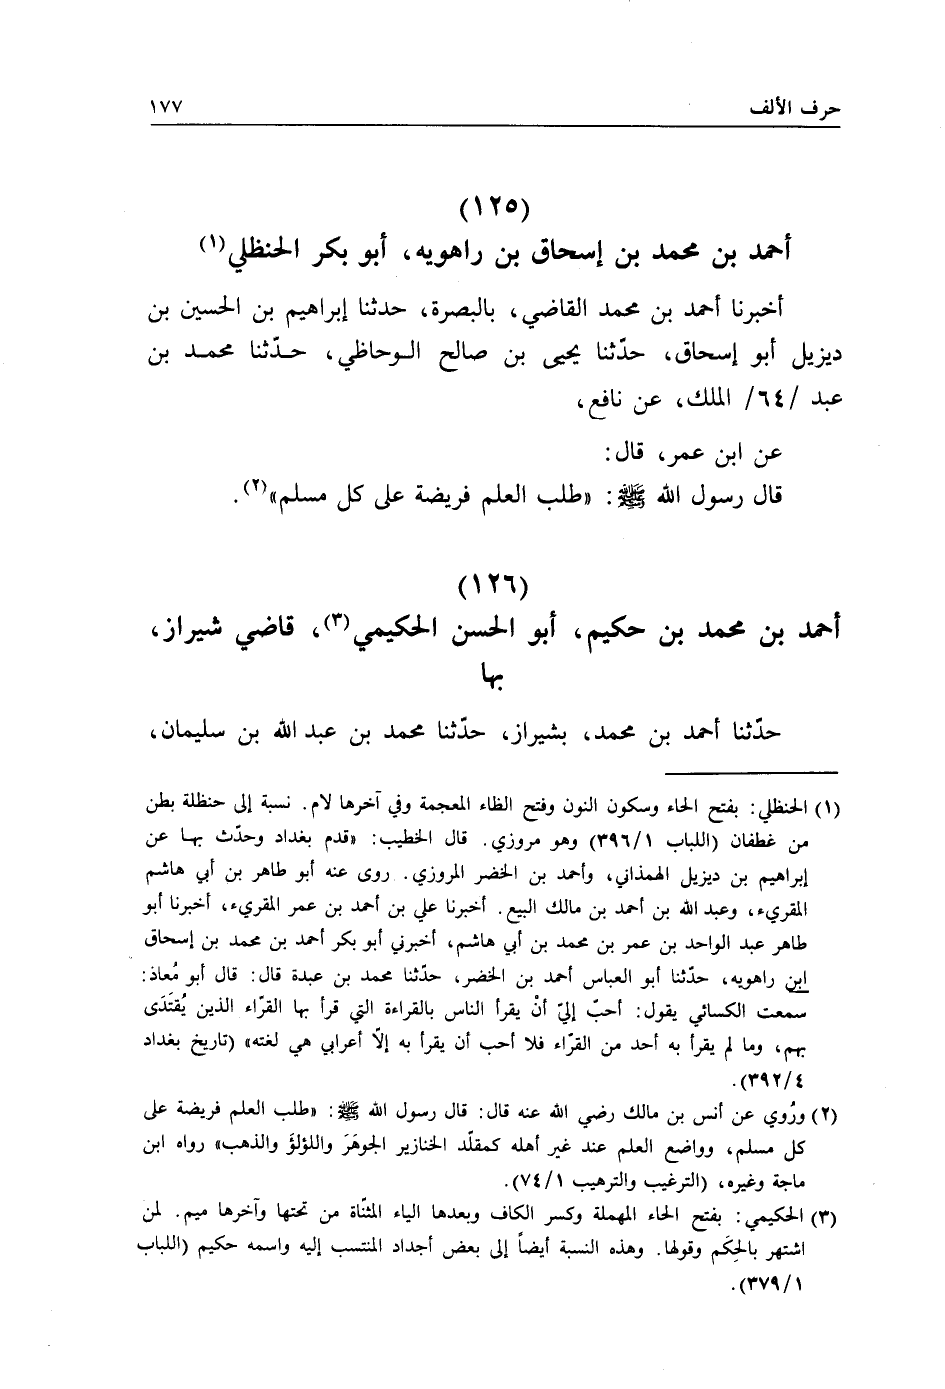 حرف الألف ١٧٧
(١٢٥)
أحمد بن محمد بن إسحاق بن راهويه، أبو بكر الحنظلي(١)
أخبرنا أحمد بن محمد القاضي، بالبصرة، حدثنا إبراهيم بن الحسين بن
ديزيل أبو إسحاق، حدّثنا يحيى بن صالح الـوحاظي، حـدّثنا محمـد بن
عبد /٦٤/ الملك، عن نافع،
عن ابن عمر، قال:
قال رسول الله ﷺ: «طلب العلم فريضة على كل مسلم»(٢).
(١٢٦)
أحمد بن محمد بن حكيم، أبو الحسن الحكيمي(٣)، قاضي شيراز،
بها
حدّثنا أحمد بن محمد، بشيراز، حدّثنا محمد بن عبد الله بن سليمان،
(١) الحنظلي: بفتح الحاء وسكون النون وفتح الظاء المعجمة وفي آخرها لام. نسبة إلى حنظلة بطن
من غطفان (اللباب ٣٩٦/١) وهو مروزي. قال الخطيب: «قدم بغداد وحدّث بهـا عن
إبراهيم بن ديزيل الهمذاني، وأحمد بن الخضر المروزي. روى عنه أبو طاهر بن أبي هاشم
المقريء، وعبد الله بن أحمد بن مالك البيع. أخبرنا علي بن أحمد بن عمر المقريء، أخبرنا أبو
طاهر عبد الواحد بن عمر بن محمد بن أبي هاشم، أخبرني أبو بكر أحمد بن محمد بن إسحاق
ابن راهويه، حدّثنا أبو العباس أحمد بن الخضر، حدّثنا محمد بن عبدة قال: قال أبو مُعاذ:
سمعت الكسائي يقول: أحبّ إليّ أنْ يقرأ الناس بالقراءة التي قرأ بها القرّاء الذين يُقتَدَى
بهم، وما لم يقرأ به أحد من القرّاء فلا أحب أن يقرأ به إلّا أعرابي هي لغته» (تاريخ بغداد
٣٩٢/٤).
(٢) ورُوي عن أنس بن مالك رضي الله عنه قال: قال رسول الله ﷺ: «طلب العلم فريضة على
كل مسلم، وواضع العلم عند غير أهله كمقلّد الخنازير الجوهَرَ واللؤلؤَ والذهب» رواه ابن
ماجة وغيره، (الترغيب والترهيب ٧٤/١).
(٣) الحكيمي: بفتح الحاء المهملة وكسر الكاف وبعدها الياء المثنّاة من تحتها وآخرها ميم. لمن
اشتهر بالحِكَم وقولها. وهذه النسبة أيضاً إلى بعض أجداد المنتسب إليه واسمه حكيم (اللباب
٣٧٩/١).